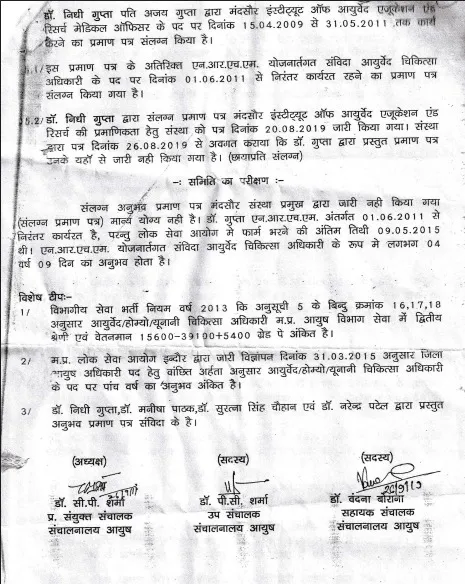 डॉ. निधी गुप्ता पति अजय गुप्ता द्वारा मंदसौर इंस्टीट्यूट ऑफ आयुर्वेद एजूकेशन एंड
रिसर्च मेडिकल ऑफिसर के पद पर दिनांक 15.04.2009 से 31.05.2011 तक कार्य
करने का प्रमाण पत्र संलग्न किया है।
5.1/ इस प्रमाण पत्र के अतिरिक्त एन.आर.एच.एम. योजनार्तगत संविदा आयुर्वेद चिकित्सा
अधिकारी के पद पर दिनांक 01.06.2011 से निरंतर कार्यरत रहने का प्रमाण पत्र
संलग्न किया गया है।
5.2/ डॉ. निधी गुप्ता द्वारा संलग्न प्रमाण पत्र मंदसौर इंस्टीट्यूट ऑफ आयुर्वेद एजूकेशन एंड
रिसर्च की प्रमाणिकता हेतु संस्था को पत्र दिनांक 20.08.2019 जारी किया गया। संस्था
द्वारा पत्र दिनांक 26.08.2019 से अवगत कराया कि डॉ. गुप्ता द्वारा प्रस्तुत प्रमाण पत्र
उनके यहाँ से जारी नही किया गया है। (छायाप्रति संलग्न)
-: समिति का परीक्षण :-
संलग्न अनुभव प्रमाण पत्र मंदसौर संस्था प्रमुख द्वारा जारी नही किया गया
(संलग्न प्रमाण पत्र) मान्य योग्य नही है। डॉ. गुप्ता एन.आर.एच.एम. अंतर्गत 01.06.2011 से
निरंतर कार्यरत है, परन्तु लोक सेवा आयोग मे फार्म भरने की अंतिम तिथी 09.05.2015
थी। एन.आर.एच.एम. योजनार्तगत संविदा आयुर्वेद चिकित्सा अधिकारी के रूप मे लगभग 04
वर्ष 09 दिन का अनुभव होता है।
विशेष टीपः-
1/ विभागीय सेवा भर्ती नियम वर्ष 2013 कि अनुसूची 5 के बिन्दु क्रमांक 16,17,18
अनुसार आयुर्वेद/होम्यो/यूनानी चिकित्सा अधिकारी म.प्र. आयुष विभाग सेवा में द्वितीय
श्रेणी एवं वेतनमान 15600-39100+5400 ग्रेड पे अंकित है।
2/ म.प्र. लोक सेवा आयोग इन्दौर द्वारा जारी विज्ञापन दिनांक 31.03.2015 अनुसार जिला
आयुष अधिकारी पद हेतु वांछित अर्हता अनुसार आयुर्वेद/होम्यो/यूनानी चिकित्सा अधिकारी
के पद पर पांच वर्ष का अनुभव अंकित है।
3/ डॉ. निधी गुप्ता,डॉ. मनीषा पाठक,डॉ. सुरत्ना सिंह चौहान एवं डॉ. नरेन्द्र पटेल द्वारा प्रस्तुत
अनुभव प्रमाण पत्र संविदा के है।
(अध्यक्ष) (सदस्य) (सदस्य)
डॉ. सी.पी. शर्मा डॉ. पी.सी. शर्मा डॉ. वंदना बौराना
प्र. संयुक्त संचालक उप संचालक सहायक संचालक
संचालनालय आयुष संचालनालय आयुष संचालनालय आयुष